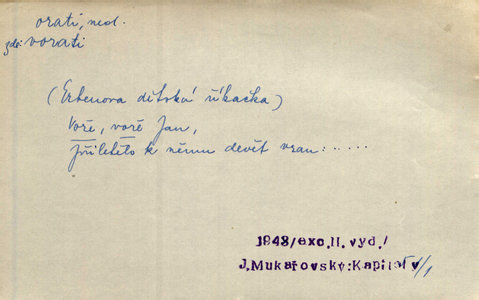 orati, ned.
zde: vorati
(Erbenova dětská říkačka)
Voře, voře Jan,
přiletělo k němu devět vran: .....
1948/exc.II.vyd./
J.Mukařovský:Kapitoly I/1